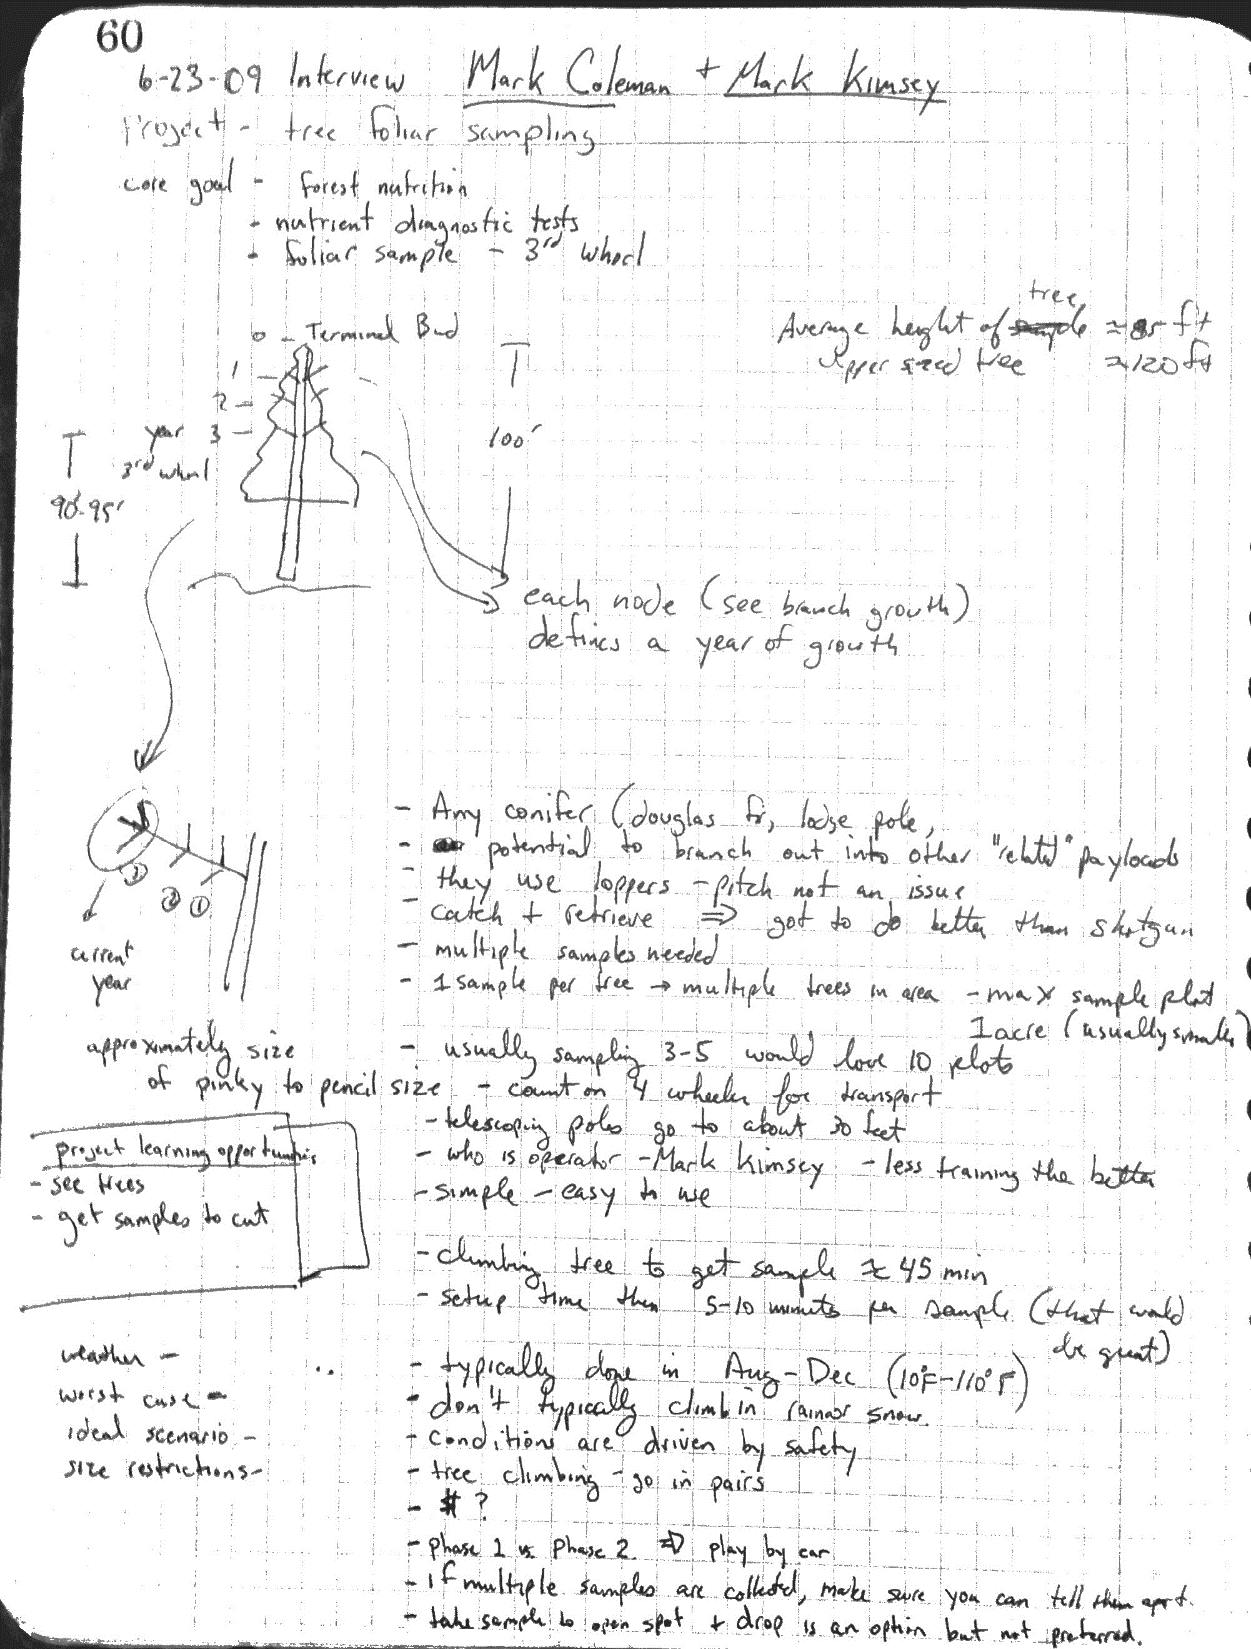 60
6-23-09 Interview Mark Coleman + Mark Kimsey
Project - tree foliar sampling
core goal - forest nutrition
- nutrient diagnostic tests
- foliar sample - 3rd whorl
tree
Average height of ≈ 85 ft
upper sized tree ≈ 120 ft
0 - Terminal Bud
1 -
2 -
year 3 -
3rd whorl
100'
90'-95'
each node (see branch growth)
defines a year of growth
③
② ①
current
year
approximately size
of pinky to pencil size
- Any conifer (douglas fir, lodge pole,
- potential to branch out into other "related" payloads
- they use loppers - pitch not an issue
- catch + retrieve ⇒ got to do better than shotgun
- multiple samples needed
- 1 sample per tree → multiple trees in area - max sample plot
1 acre (usually smaller)
- usually sampling 3-5 would love 10 plots
- count on 4 wheeler for transport
- telescoping poles go to about 30 feet
- who is operator - Mark Kimsey - less training the better
- simple - easy to use
project learning opportunities
- see trees
- get samples to cut
- climbing tree to get sample ≈ 45 min
- setup time then 5-10 minutes per sample (that would
be great)
weather -
worst case -
ideal scenario -
size restrictions -
- typically done in Aug-Dec (10°F-110°F)
- don't typically climb in rain or snow.
- conditions are driven by safety
- tree climbing - go in pairs
- $ ?
- phase 1 vs. Phase 2 ⇒ play by ear
- if multiple samples are collected, make sure you can tell them apart.
- take sample to open spot + drop is an option but not preferred.